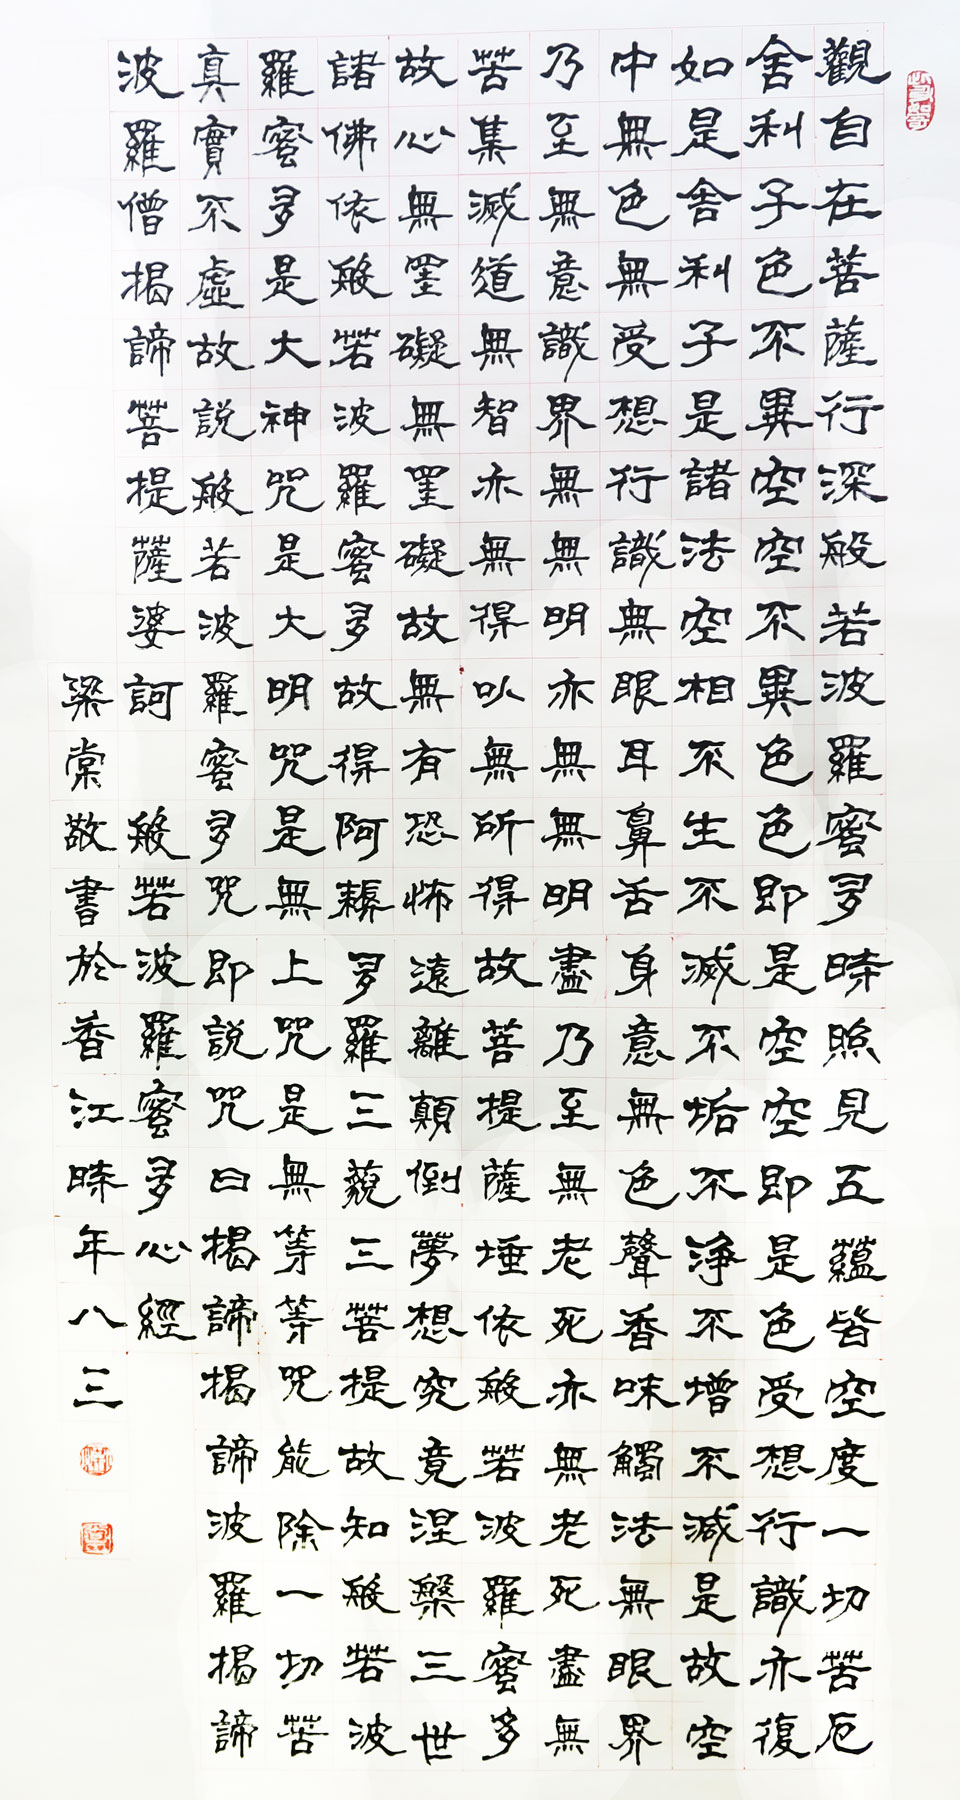 觀自在菩薩行深般若波羅蜜多時照見五蘊皆空度一切苦厄
舍利子色不異空空不異色色即是空空即是色受想行識亦復
如是舍利子是諸法空相不生不滅不垢不淨不增不減是故空
中無色無受想行識無眼耳鼻舌身意無色聲香味觸法無眼界
乃至無意識界無無明亦無無明盡乃至無老死亦無老死盡無
苦集滅道無智亦無得以無所得故菩提薩埵依般若波羅蜜多
故心無罣礙無罣礙故無有恐怖遠離顛倒夢想究竟涅槃三世
諸佛依般若波羅蜜多故得阿耨多羅三藐三菩提故知般若波
羅蜜多是大神咒是大明咒是無上咒是無等等咒能除一切苦
真實不虛故說般若波羅蜜多咒即說咒曰揭諦揭諦波羅揭諦
波羅僧揭諦菩提薩婆訶 般若波羅蜜多心經
梁棠敬書於香江時年八三